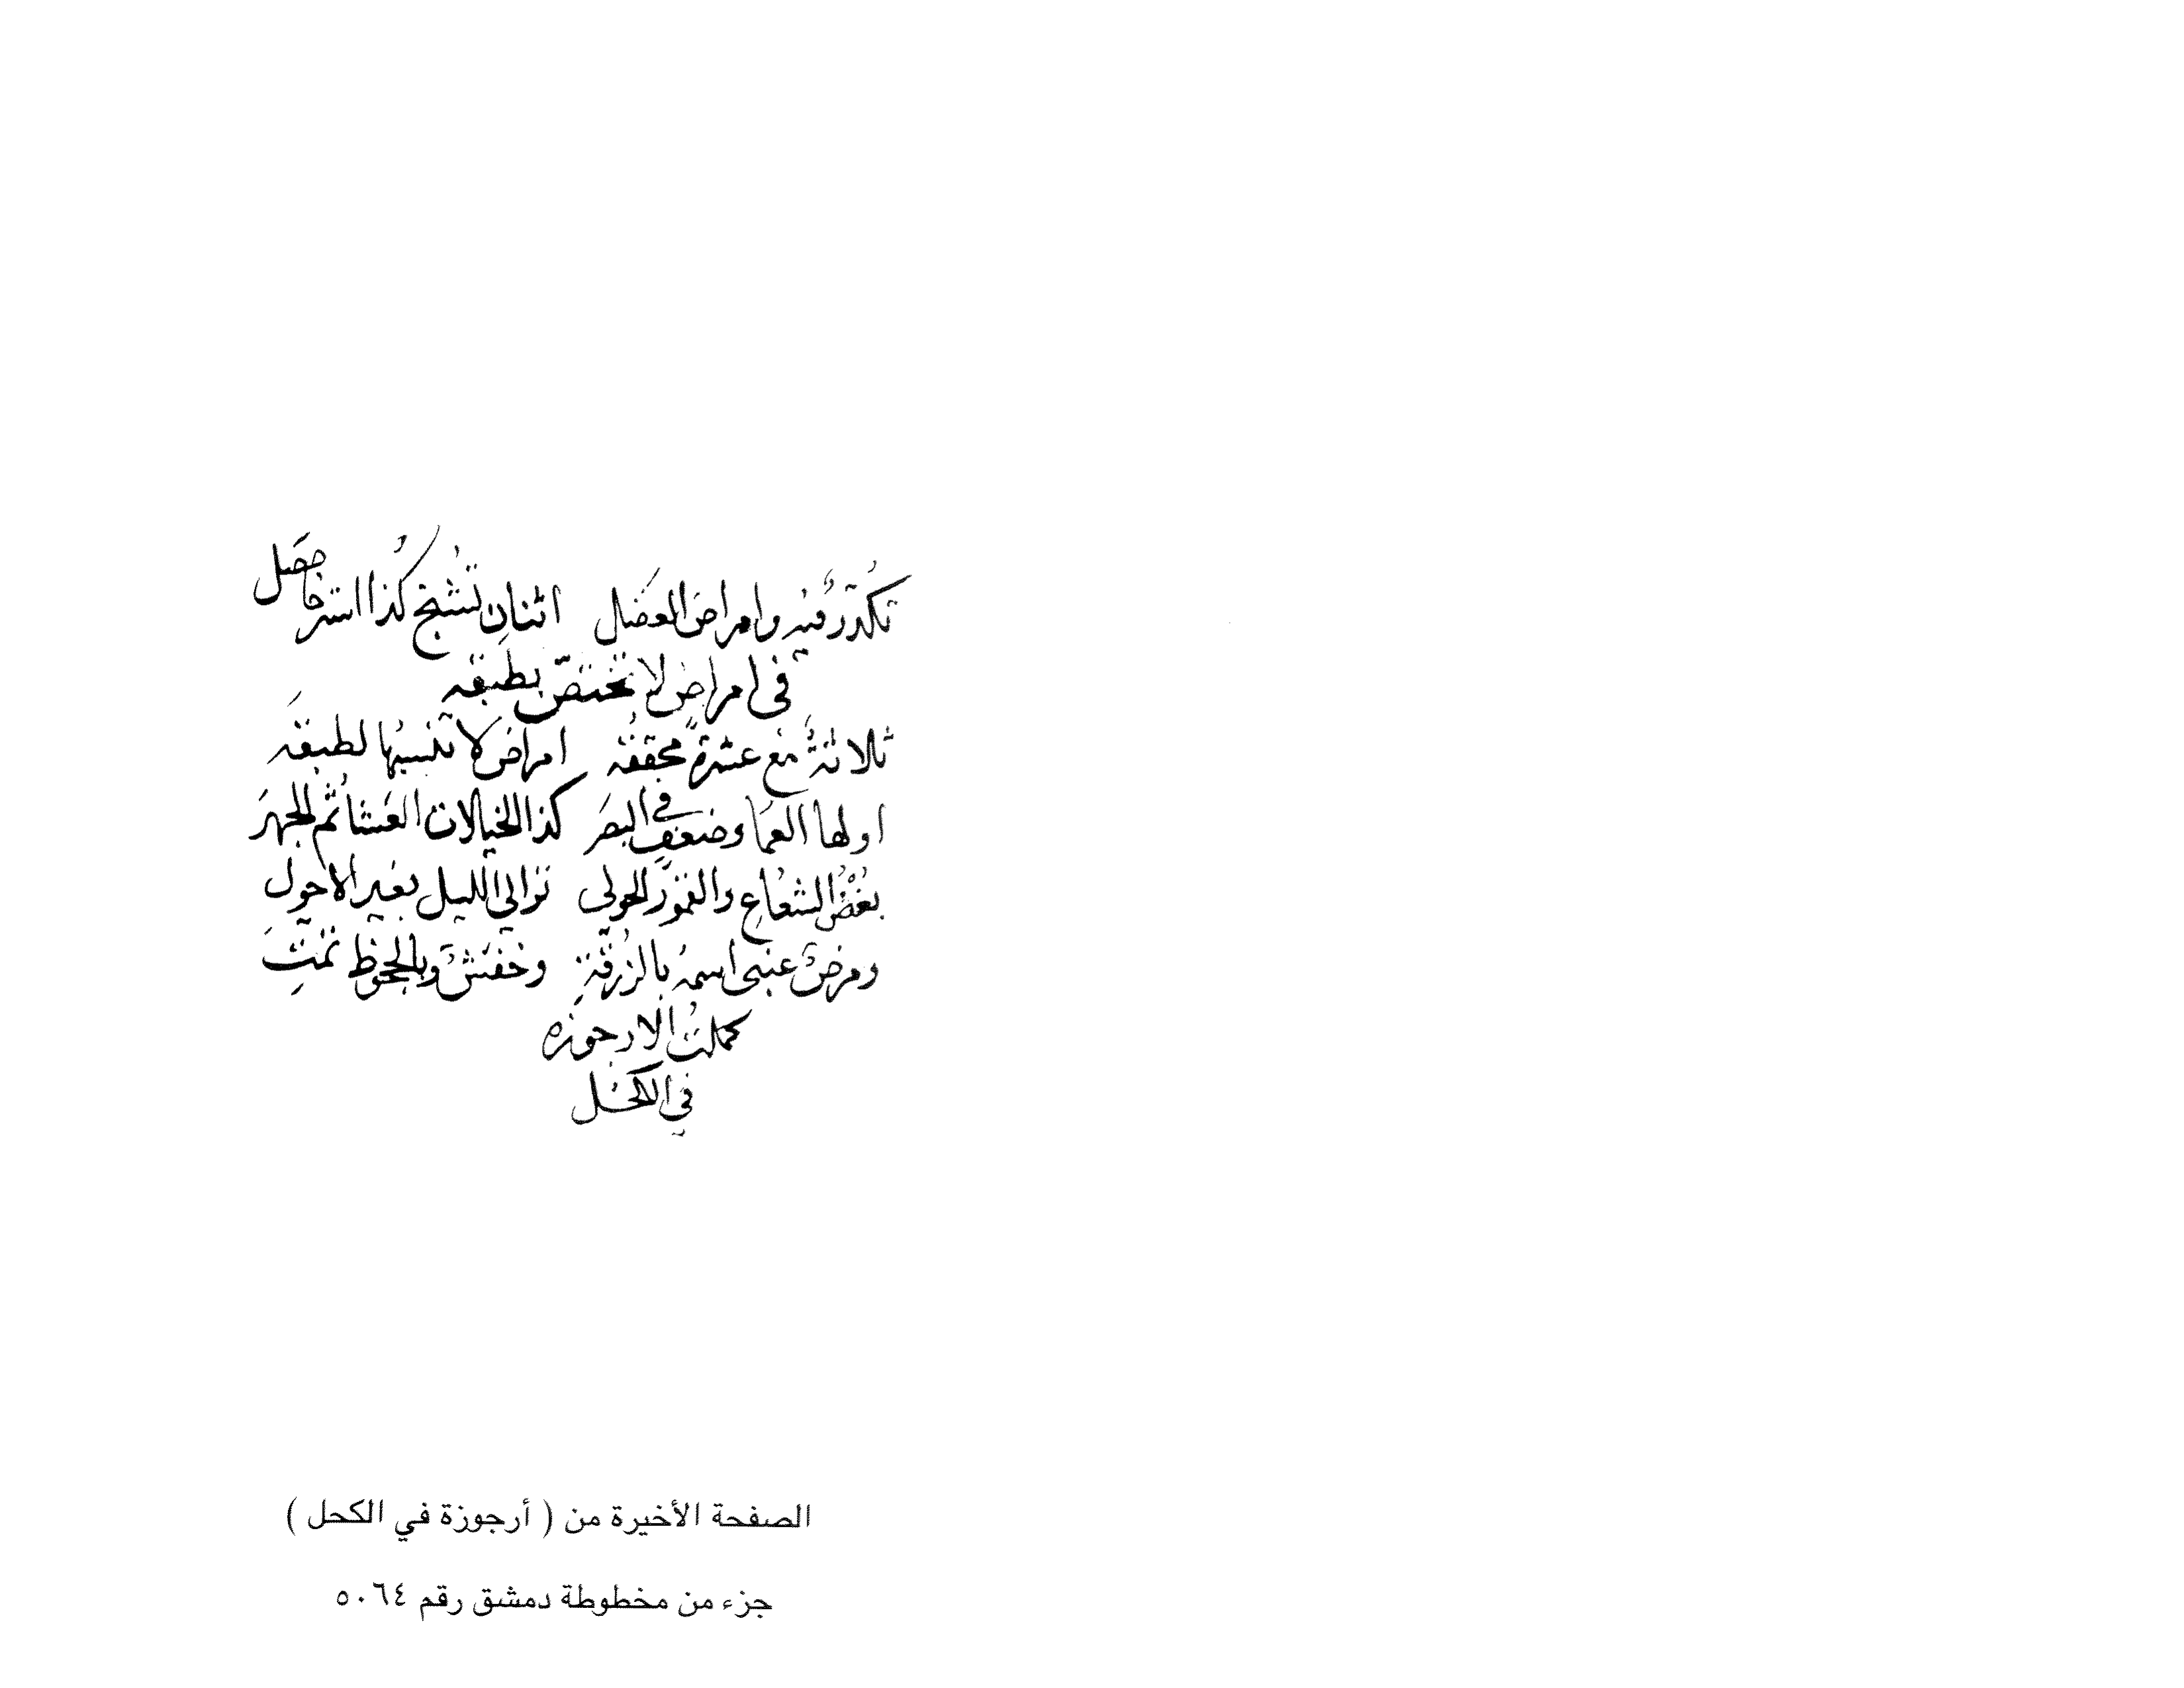 تكدّر فيه وامراض العضل اثنان تشنج كذا استرخا حصل
في امراض لا تختصّ بطبقه
ثلاثةٌ مع عشرةٍ محققه امراض لا تنسبها لطبقه
اولها العما وضعف في البصر كذا الخيالات العشا ثم الجهر
بغض الشعاع والقمور الحولى ترالي الليل بغير الاحول
ومرض عنبى اسمه بالزرقة وخفش وبالجحوظ تمت
كملت الارجوزه
في الكحل
الصفحة الأخيرة من ( أرجوزة في الكحل )
جزء من مخطوطة دمشق رقم ٥٠٦٤